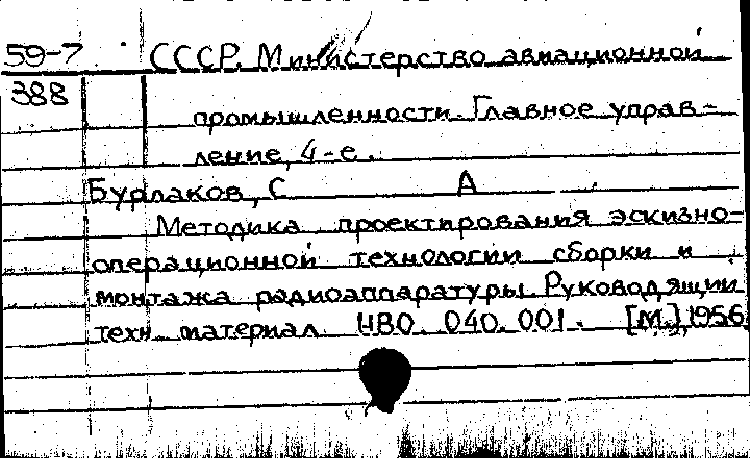 59-7 СССР. Министерство авиационной
388
промышленности. Главное управ-
ление, 4-е.
Бурлаков, С А
Методика проектирования эскизно-
операционной технологии сборки и
монтажа радиоаппаратуры. Руководящий
техн. материал НВО. 040. 001. [М.], 1956